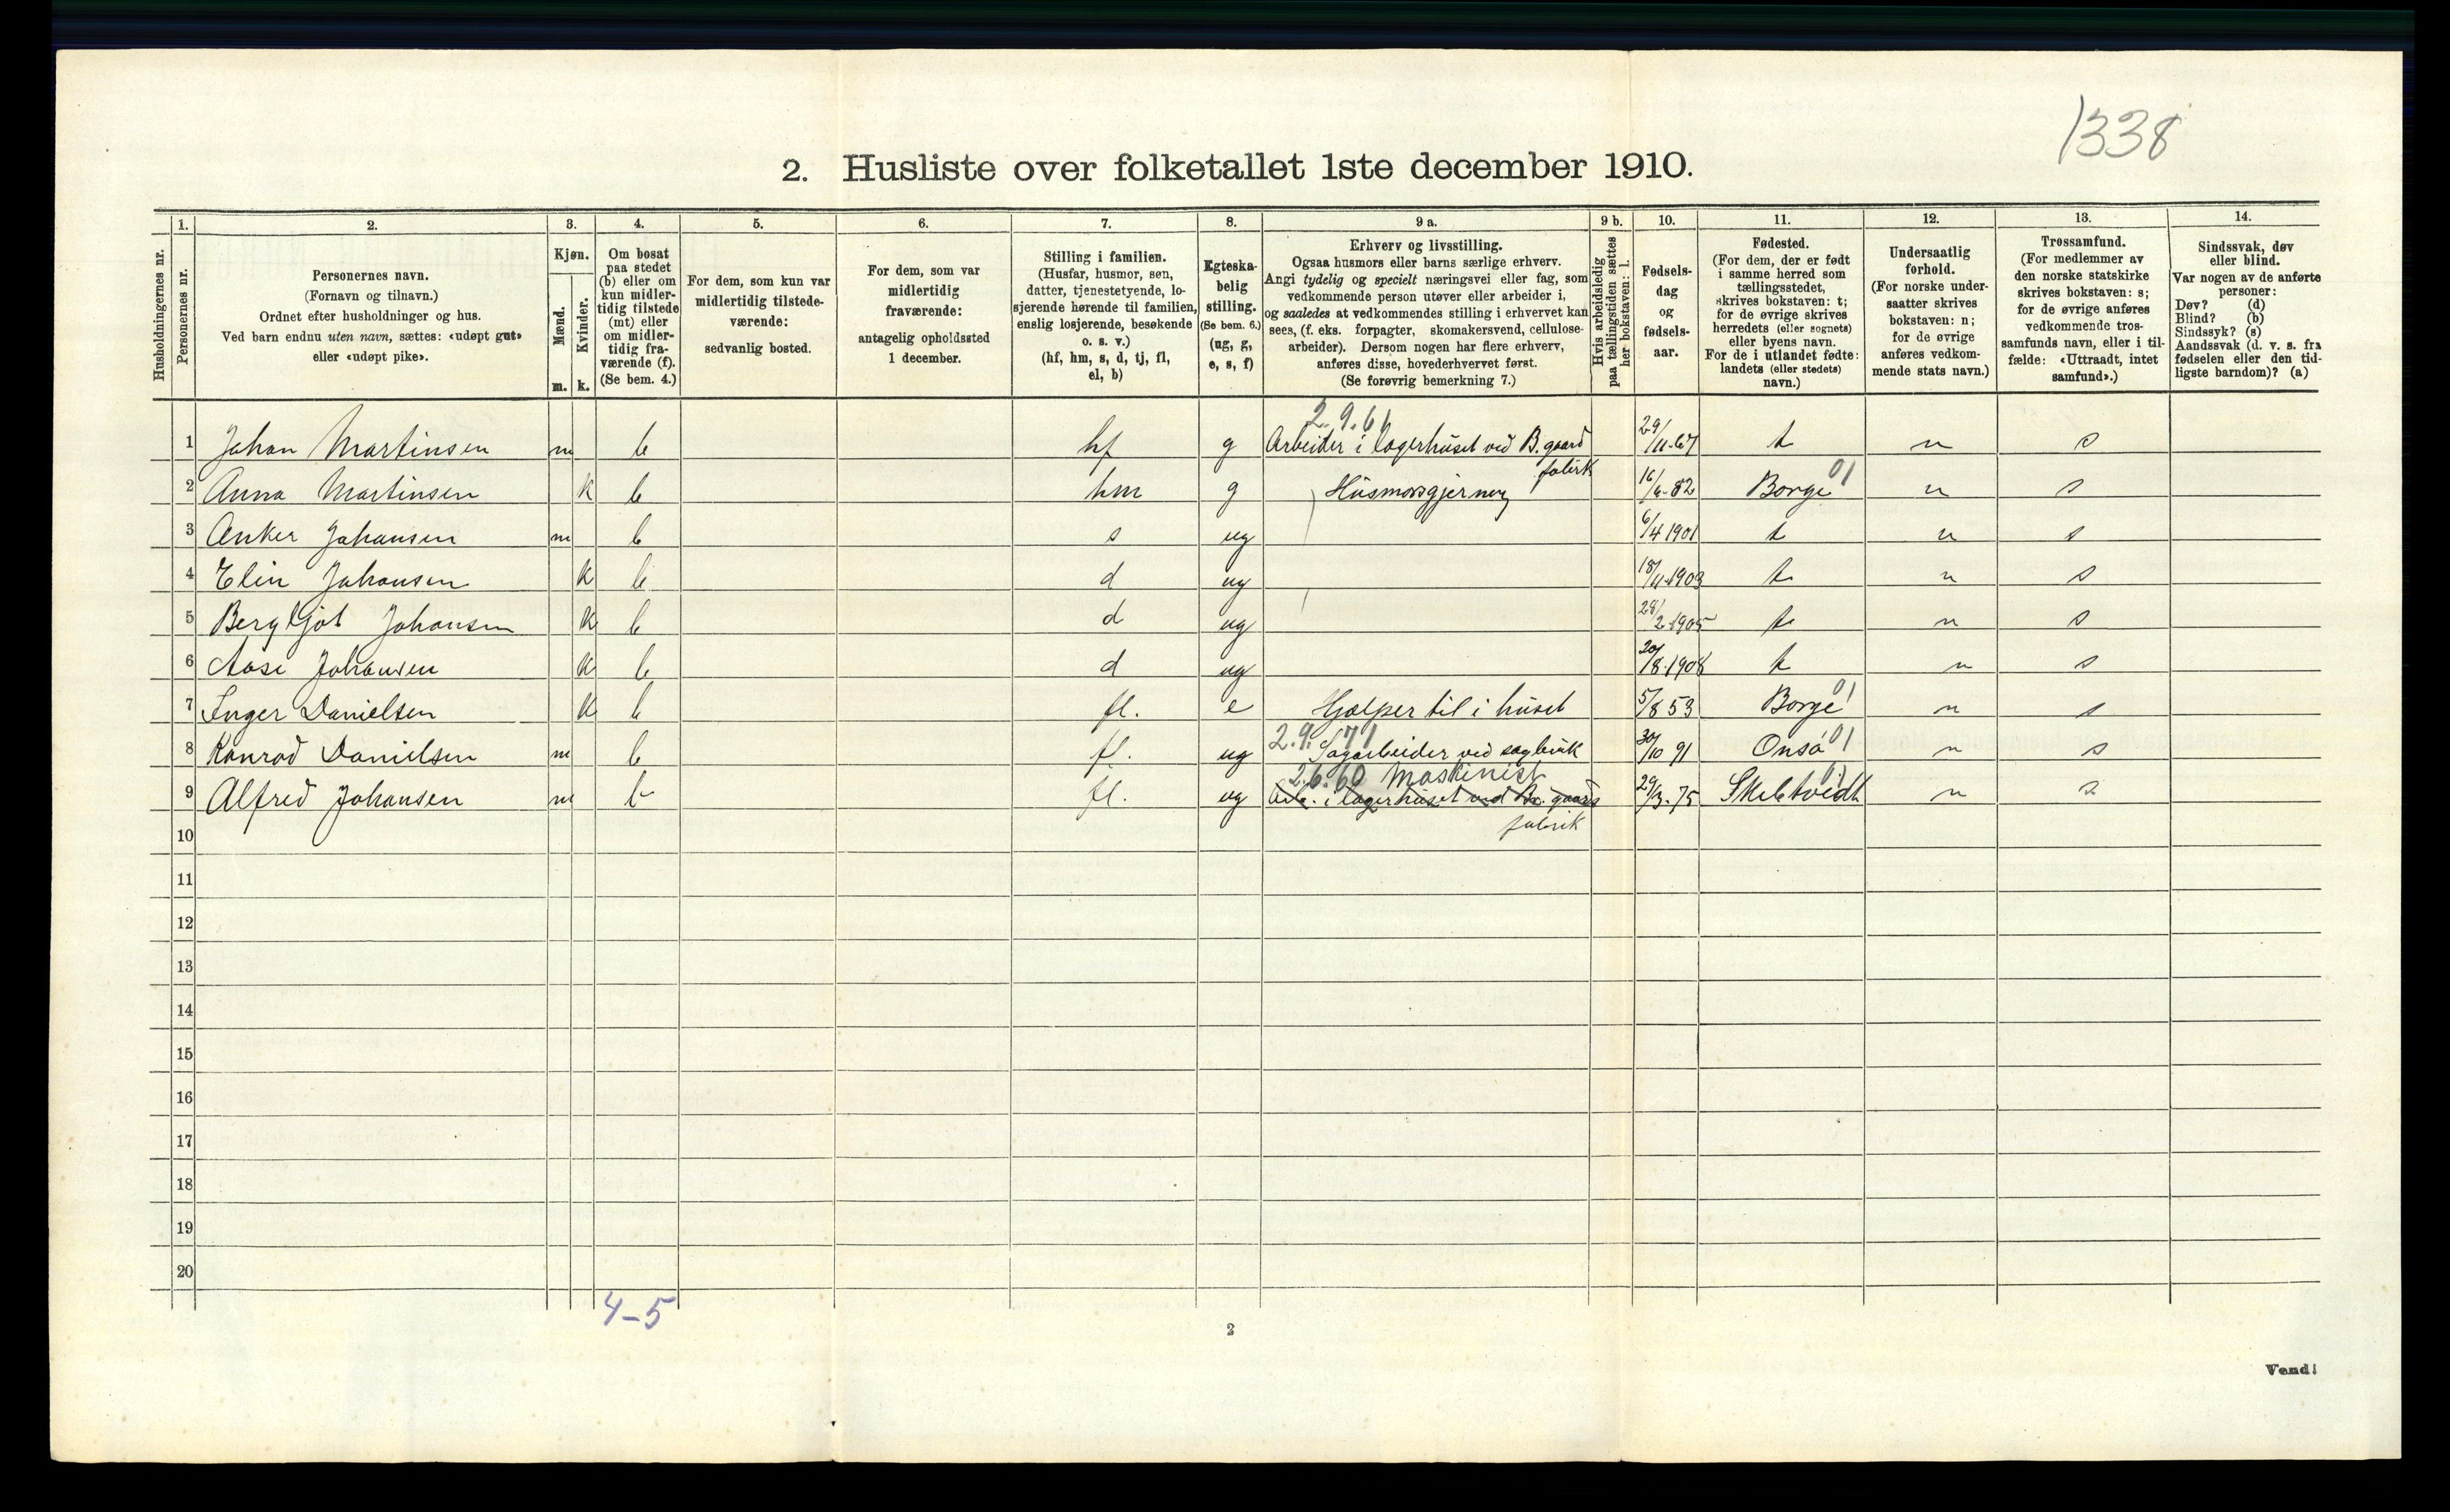 1338
2. Husliste over folketallet 1ste december 1910.
Husholdningernes nr.
1.
Personernes nr.
2.
Personernes navn.
(Fornavn og tilnavn.)
Ordnet efter husholdninger og hus.
Ved barn endnu uten navn, sættes: «udøpt gut»
eller «udøpt pike».
3.
Kjøn.
Mænd.
Kvinder.
m. k.
4.
Om bosat
paa stedet
(b) eller om
kun midler-
tidig tilstede
(mt) eller
om midler-
tidig fra-
værende (f).
(Se bem. 4.)
5.
For dem, som kun var
midlertidig tilstede-
værende:
sedvanlig bosted.
6.
For dem, som var
midlertidig
fraværende:
antagelig opholdssted
1 december.
7.
Stilling i familien.
(Husfar, husmor, søn,
datter, tjenestetyende, lo-
sjerende hørende til familien,
enslig losjerende, besøkende
o. s. v.)
(hf, hm, s, d, tj, fl,
el, b)
8.
Egteska-
belig
stilling.
(Se bem. 6.)
(ug, g,
e, s, f)
9 a.
Erhverv og livsstilling.
Ogsaa husmors eller barns særlige erhverv.
Angi tydelig og specielt næringsvei eller fag, som
vedkommende person utøver eller arbeider i,
og saaledes at vedkommendes stilling i erhvervet kan
sees, (f. eks. forpagter, skomakersvend, cellulose-
arbeider). Dersom nogen har flere erhverv,
anføres disse, hovederhvervet først.
(Se forøvrig bemerkning 7.)
9 b.
Hvis arbeidsledig
paa tællingstiden sættes
her bokstaven: l.
10.
Fødsels-
dag
og
fødsels-
aar.
11.
Fødested.
(For dem, der er født
i samme herred som
tællingsstedet,
skrives bokstaven: t;
for de øvrige skrives
herredets (eller sognets)
eller byens navn.
For de i utlandet fødte:
landets (eller stedets)
navn.)
12.
Undersaatlig
forhold.
(For norske under-
saatter skrives
bokstaven: n;
for de øvrige
anføres vedkom-
mende stats navn.)
13.
Trossamfund.
(For medlemmer av
den norske statskirke
skrives bokstaven: s;
for de øvrige anføres
vedkommende tros-
samfunds navn, eller i til-
fælde: «Uttraadt, intet
samfund».)
14.
Sindssvak, døv
eller blind.
Var nogen av de anførte
personer:
Døv? (d)
Blind? (b)
Sindssyk? (s)
Aandssvak (d. v. s. fra
fødselen eller den tid-
ligste barndom)? (a)
2.9.61
1 Johan Martinsen m b hf g Arbeider i lagerhuset ved B.gaard 29/11-67 t n s
fabrik
2 Anna Martinsen k b hm g Husmorsgjerning 16/6-82 Borge 01 n s
3 Anker Johansen m b s ug 6/4 1901 t n s
4 Elin Johansen k b d ug 18/11-1903 t n s
5 Bergljot Johansen k b d ug 28/2-1905 t n s
6 Aase Johansen k b d ug 20/8-1908 t n s
7 Inger Danielsen k b fl. e Hjælper til i huset 5/8 53 Borge 01 n s
2.9.71
8 Konrad Danielsen m b fl. ug Sagarbeider ved sagbruk 30/10 91 Onsø 01 n s
2.6.60 Maskinist
9 Alfred Johansen m b fl. ug Arb. i lagerhuset ved Br. gaards 29/3-75 Skebtvedt 01 n s
fabrik
10
11
12
13
14
15
16
17
18
19
20
4-5
2
Vend!